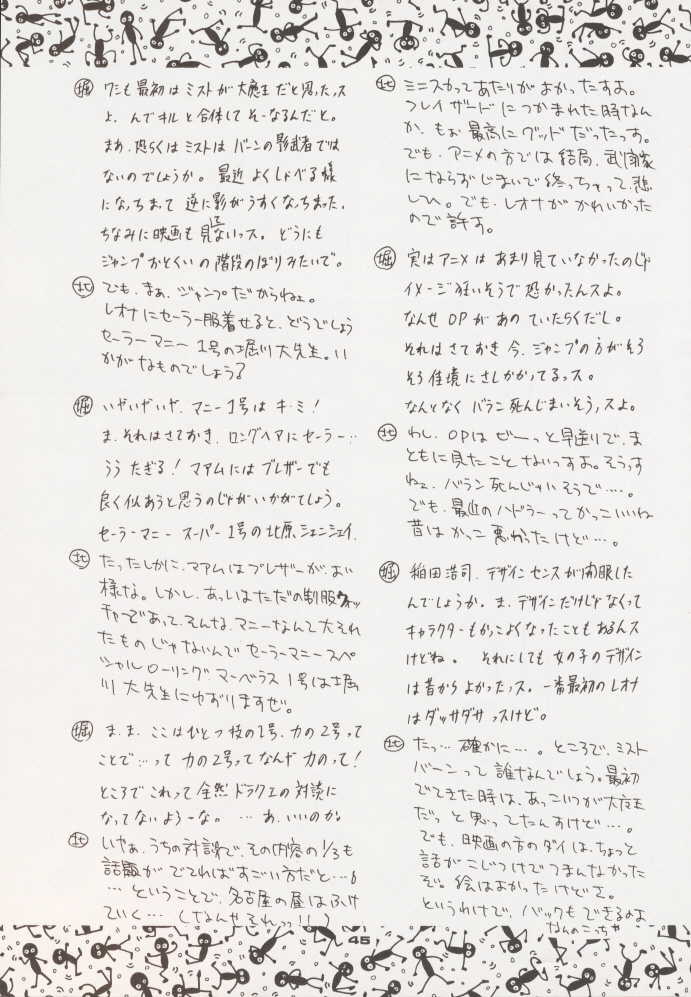 北 ミニスカってあたりがよかったすよ。
フレイザードにつかまれた時なん
か、もぉ最高にグッドだったっす。
でも、アニメの方では結局、武闘家
にならずじまいで終っちゃって、悲
しひ。でも、レオナがかわいかった
ので許す。
堀 実はアニメはあまり見ていなかったのじゃ
イメージ狂いそうで恐かったんスよ。
なんせOPがあのていたらくだし。
それはさておき今、ジャンプの方がそろ
そろ佳境にさしかかってるっス。
なんとなくバラン死んじまいそうっスよ。
北 わし、OPはぜーっと早送りで、ま
ともに見たことないっすよ。そうっす
ねェ、バラン死んじゃいそうで…。
でも、最近のハドラーってかっこいいね
昔はかっこ悪かったけど…。
堀 稲田浩司、デザインセンスが開眼した
んでしょうか。ま、デザインだけじゃなくって
キャラクターもかっこよくなったこともあるんス
けどね。それにしても女の子のデザイン
は昔からよかったっス。一番最初のレオナ
はダッサダサっスけど。
北 たっ…確かに…。ところで、ミスト
バーンって誰なんでしょう。最初
でてきた時は、あっこいつが大魔王
だっと思ってたんすけど…。
でも、映画の方のダイは、ちょっと
話がこじつけでつまんなかった
ぞ。絵はよかったけどさ。
というわけで、バックもできるのよ
なんのこっちゃ
堀 ワシも最初はミストが大魔王だと思ったっス
よ、んでキルと合体してそーなるんだと。
まあ、恐らくはミストはバーンの影武者では
ないのでしょうか。最近よくしゃべる様
になっちまって逆に影がうすくなっちまった。
ちなみに映画も見てないっス。どうにも
ジャンプおとくいの階段のぼりみたいで。
北 でも、まぁ、ジャンプだからねェ。
レオナにセーラー服着せると、どうでしょう
セーラーマニー1号の堀川大先生。い
かがなものでしょう?
堀 いやいやいや、マニー1号はキ・ミ!
ま、それはさておき、ロングヘアにセーラー…
うう たぎる!マアムにはブレザーでも
良く似あうと思うのじゃがいかがでしょう。
セーラーマニースーパー1号の北原シェンシェイ。
北 たったしかに、マアムはブレザーが、よい
様な。しかし、あっしはただの制服ウォッ
チャーであって、そんな、マニーなんて大それ
たものじゃないんでセーラーマニースペ
シャルローリングマーベラス1号は堀
川大先生にゆずりますぜ。
堀 ま、ま、ここはひとつ技の1号、力の2号って
ことで…って力の2号ってなんや力のって!
ところでこれって全然ドラクエの対談に
なってないよーな。…あ、いいのか。
北 いやぁ、うちの対談で、その内容の1/3も
話題がでてればすごい方だと…。
…ということで、名古屋の昼はふけ
ていく…(なんやそれっ!!)
45